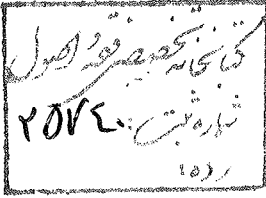 کتابخانه تخصصی فقه و اصول
شماره ثبت ۲۵۷۴۰
رده: